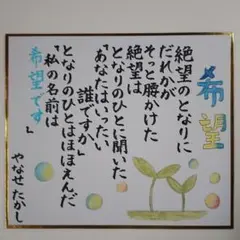 希望
絶望のとなりに
だれかが
そっと腰かけた
絶望は
となりのひとに聞いた
「あなたはいったい
誰ですか」
となりのひとはほほえんだ
「私の名前は
希望です」
やなせたかし